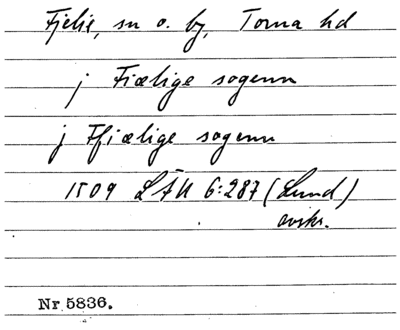 Fjelie, sn o. by, Torna hd
j Fiælige sogenn
j Ffiælige sogenn
1509 LÄU 6:287 (Lund)
avskr.
Nr 5836.